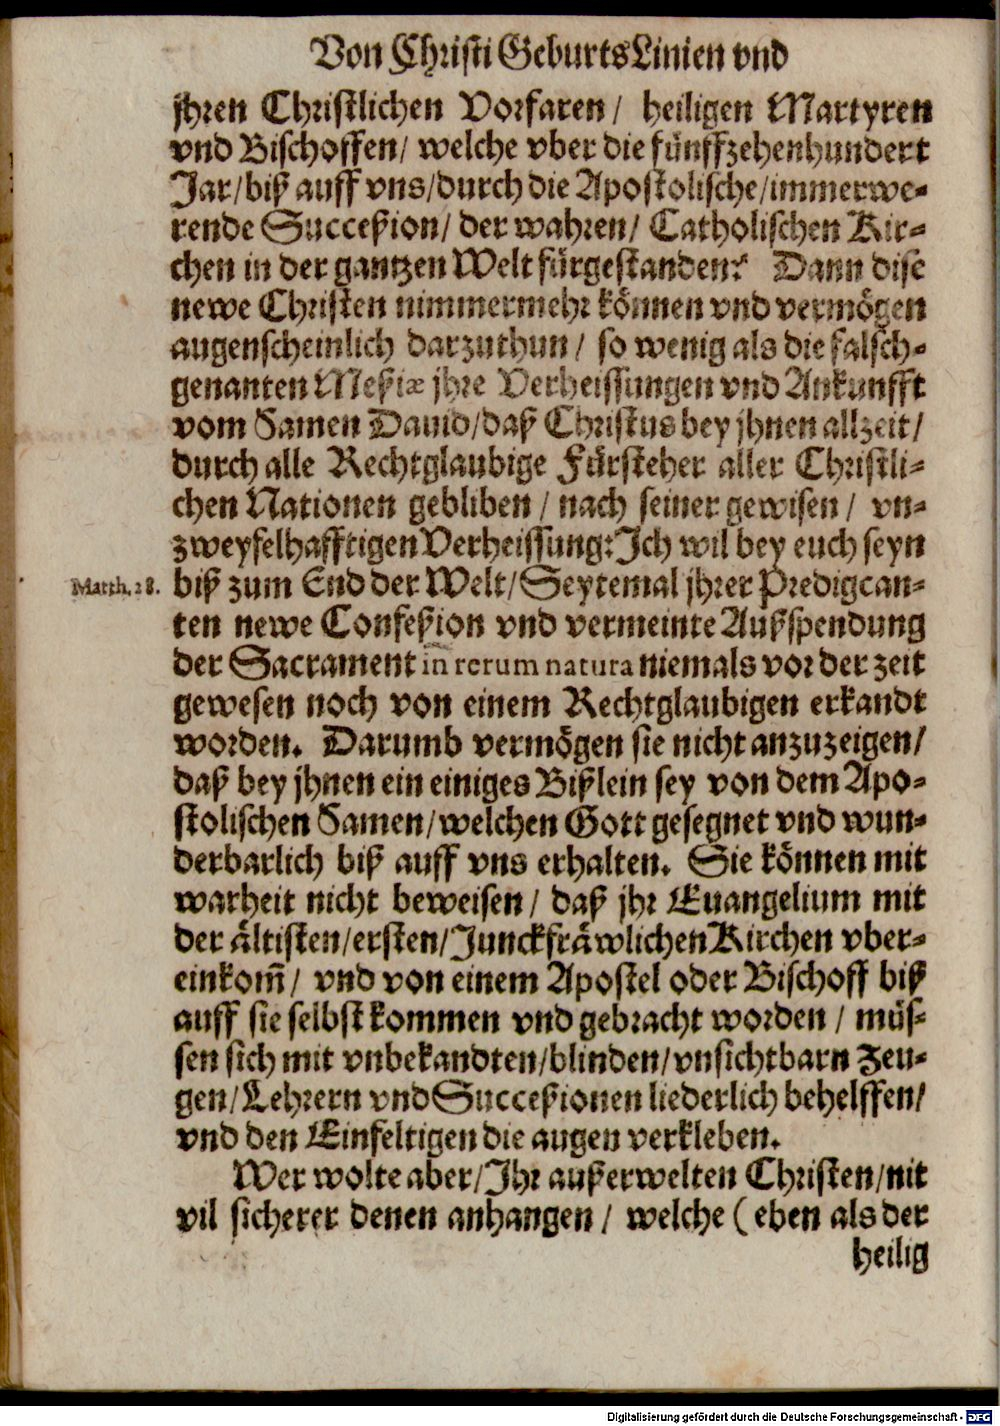 Von Christi Geburts Linien vnd
jhren Christlichen Vorfaren / heiligen Martyren
vnd Bischoffen / welche vber die fünffzehenhundert
Jar / biß auff vns / durch die Apostolische / immerwe-
rende Succeßion / der wahren / Catholischen Kir-
chen in der gantzen Welt fürgestanden? Dann dise
newe Christen nimmermehr können vnd vermögen
augenscheinlich darzuthun / so wenig als die falsch-
genanten Meßiæ jhre Verheissungen vnd Ankunfft
vom Samen Dauid / daß Christus bey jhnen allzeit /
durch alle Rechtglaubige Fürsteher aller Christli-
chen Nationen gebliben / nach seiner gewisen / vn-
zweyfelhafftigen Verheissung: Ich wil bey euch seyn
Matth. 28.
biß zum End der Welt / Seytemal jhrer Predigcan-
ten newe Confeßion vnd vermeinte Außspendung
der Sacrament in rerum natura niemals vor der zeit
gewesen noch von einem Rechtglaubigen erkandt
worden. Darumb vermögen sie nicht anzuzeigen /
daß bey jhnen ein einiges Bißlein sey von dem Apo-
stolischen Samen / welchen Gott gesegnet vnd wun-
derbarlich biß auff vns erhalten. Sie können mit
warheit nicht beweisen / daß jhr Euangelium mit
der ältisten / ersten / Junckfräwlichen Kirchen vber-
einkom̃ / vnd von einem Apostel oder Bischoff biß
auff sie selbst kommen vnd gebracht worden / müs-
sen sich mit vnbekandten / blinden / vnsichtbarn Zeu-
gen / Lehrern vnd Succeßionen liederlich behelffen /
vnd den Einfeltigen die augen verkleben.
Wer wolte aber / Ihr außerwelten Christen / nit
vil sicherer denen anhangen / welche ( eben als der
heilig
Digitalisierung gefördert durch die Deutsche Forschungsgemeinschaft - DFG